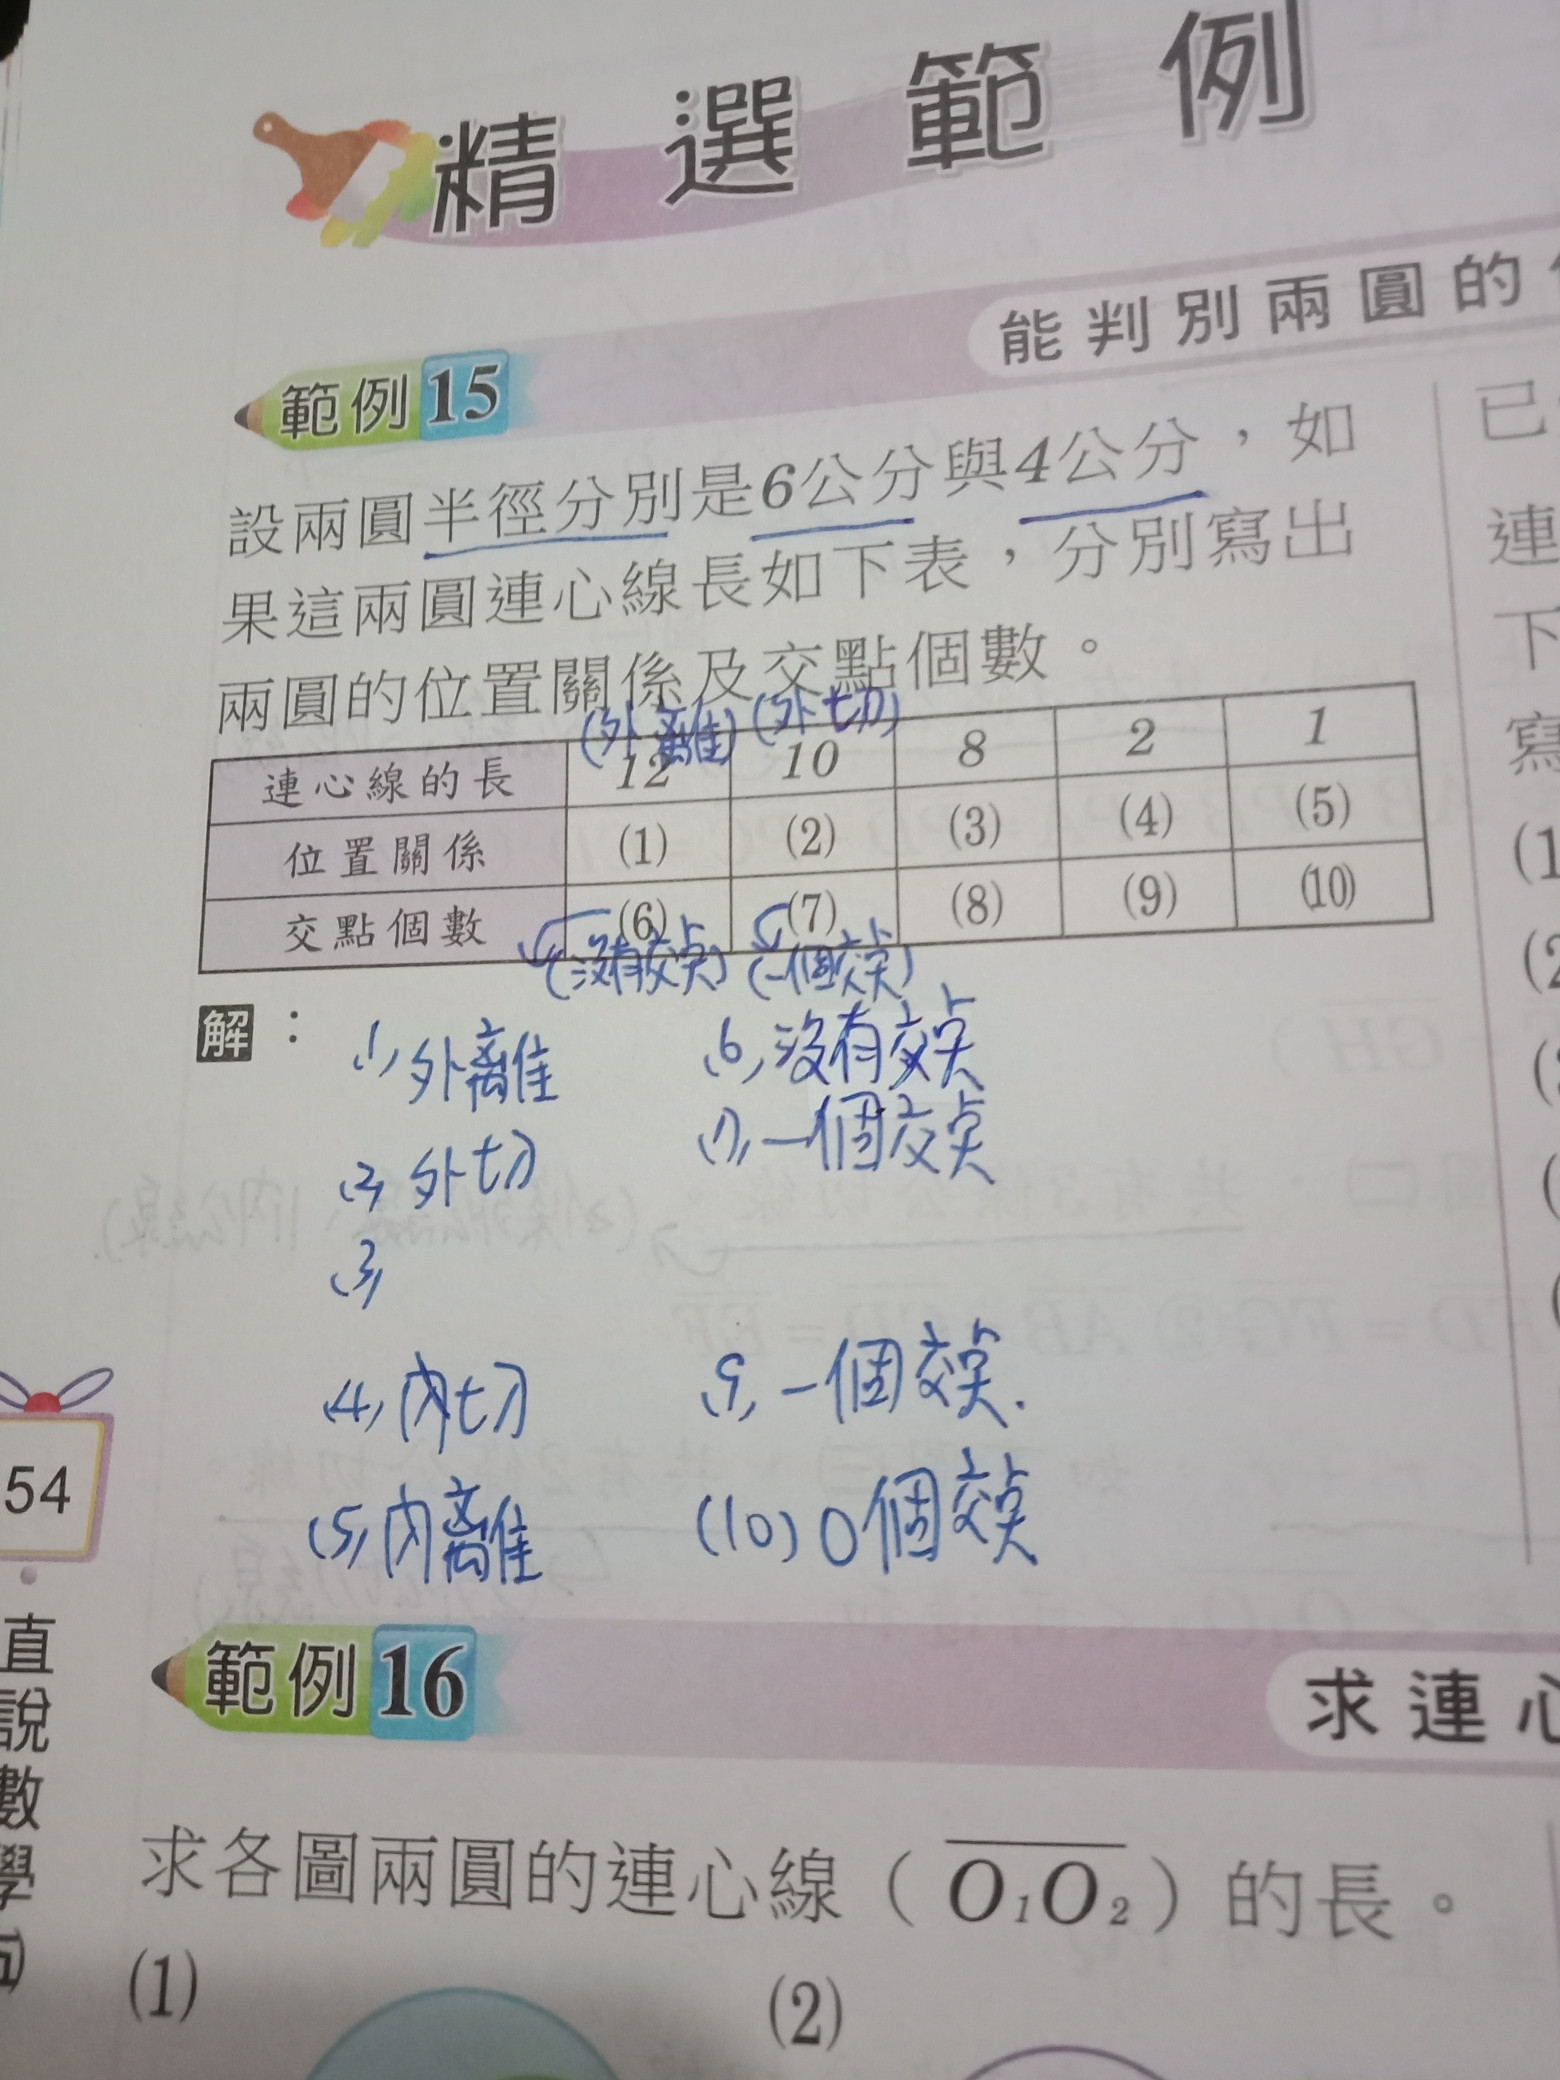 精選範例
能判別兩圓的
範例15
設兩圓半徑分別是6公分與4公分，如
果這兩圓連心線長如下表，分別寫出
兩圓的位置關係及交點個數。
(外離) (外切)
連心線的長 12 10 8 2 1
位置關係 (1) (2) (3) (4) (5)
交點個數 (6) (7) (8) (9) (10)
(沒有交点) (一個交点)
解：
(1) 外離 (6) 沒有交点
(2) 外切 (7) 一個交点
(3)
(4) 內切 (9) 一個交点.
(5) 內離 (10) 0個交点
範例16
求連心
求各圖兩圓的連心線（O₁O₂）的長。
(1) (2)
54
直說數學
已
連
下
寫
(1
(2